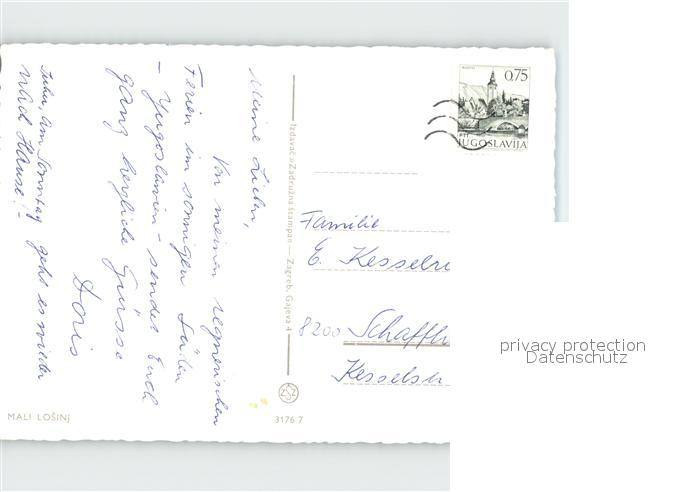 Meine Lieben,
Von meinen regnerischen
Ferien im sonnigen Süden
– Jugoslawien – sendet Euch
ganz herzliche Grüsse
Doris
am Sonntag geht es wieder
nach Hause! –
MALI LOŠINJ
Izdavač »Zadružna štampa« — Zagreb, Gajeva 4
3176 7
0,75
JUGOSLAVIJA
Familie
E. Kesselri
8200 Schaffh
Kesselstr
privacy protection
Datenschutz